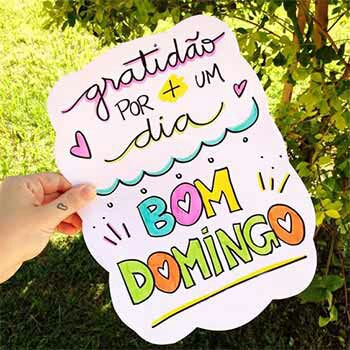 gratidão
POR + UM
dia
BOM
DOMiNGO